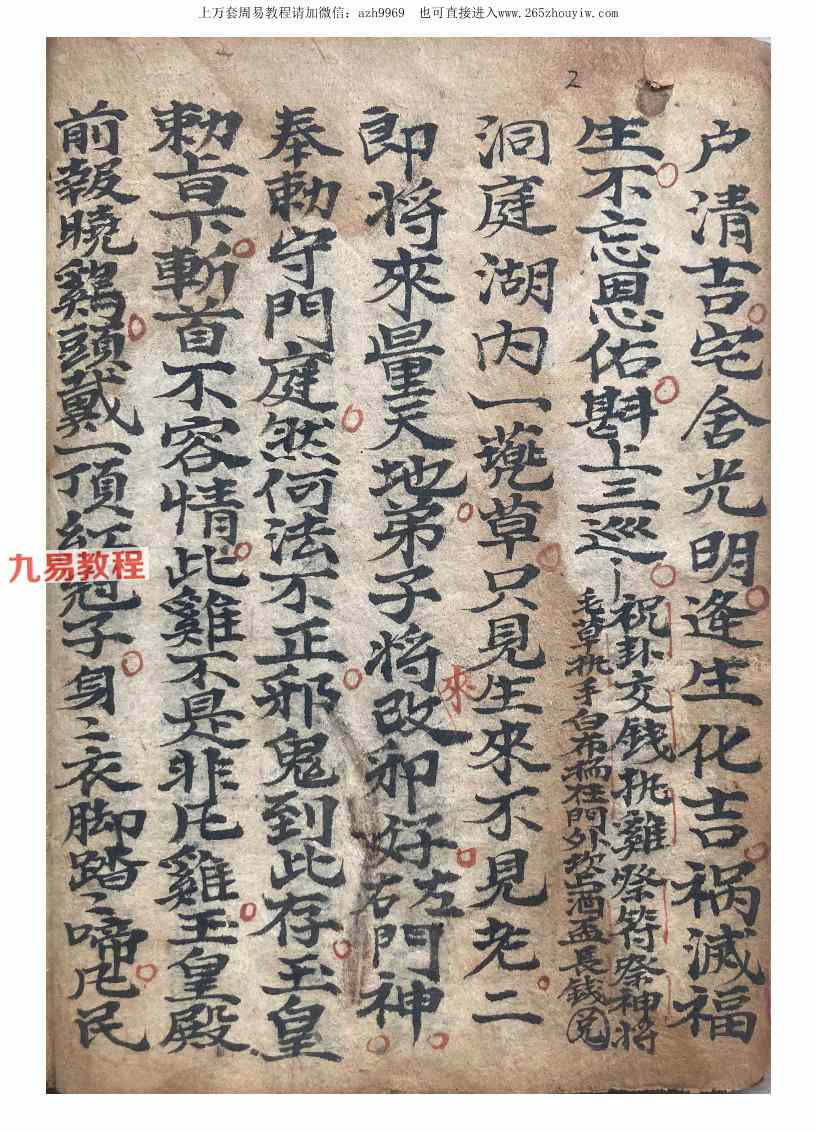 上万套周易教程请加微信：azh9969 也可直接进入www.265zhouyiw.com
2
户清吉宅舍光明逢生化吉祸滅福
生不忘恩佑斟上三巡
祝卦交錢執雞祭符祭神將
毛草执手白布 在門外 酒盃長錢
洞庭湖内一蔸草只見生來不見老二
即將來量天地弟子將改來邪好左右門神
奉勅守門庭然何法不正邪鬼到此存玉皇
勅旨下斬首不容情此雞不是非凡雞玉皇殿
前報曉鷄頭戴一頂紅冠子身〻衣脚踏〻啼凡民
九易教程